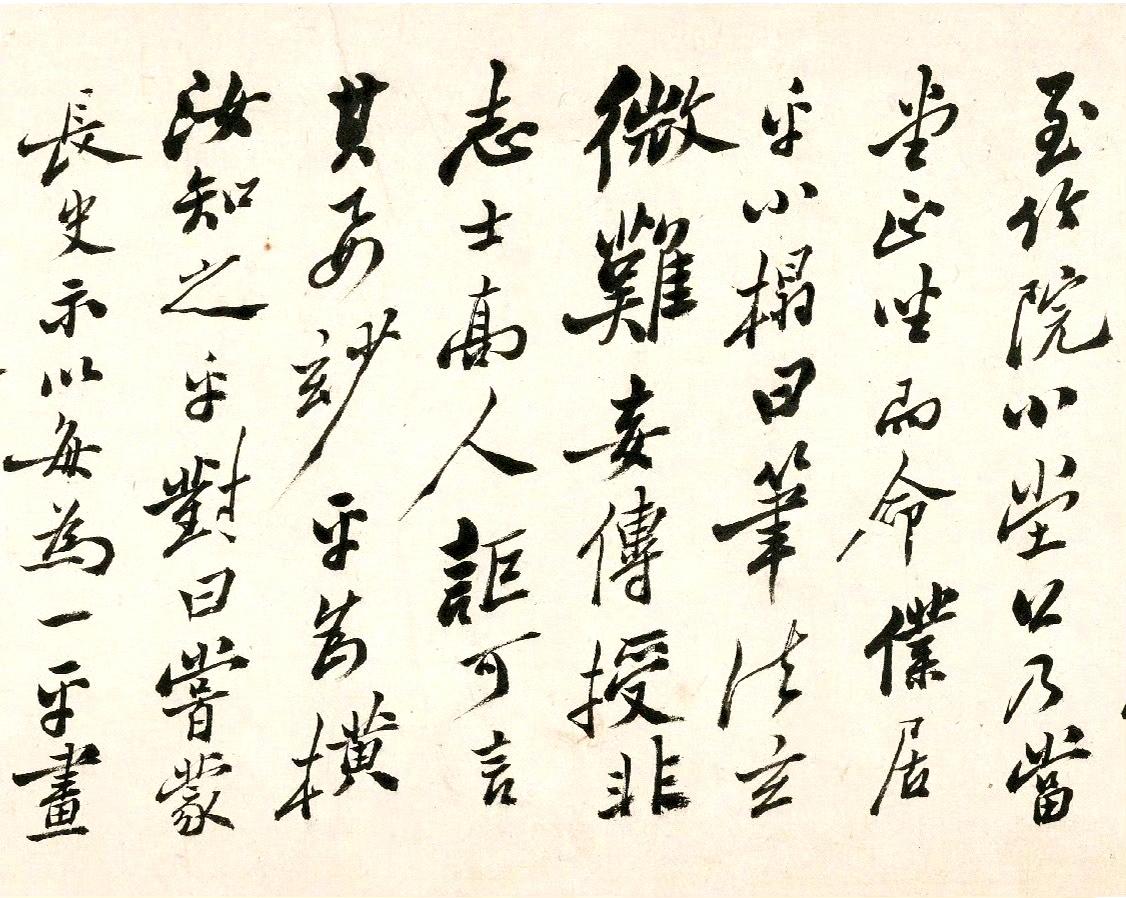 至竹院小堂公乃當
堂正坐而命僕居
乎小榻曰筆法玄
微難妄傳授非
志士高人詎可言
其要玅平橫
汝知之乎對曰嘗蒙
長史示以每為一平畫